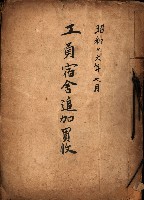 昭和十六年七月
工員宿舎追加買收